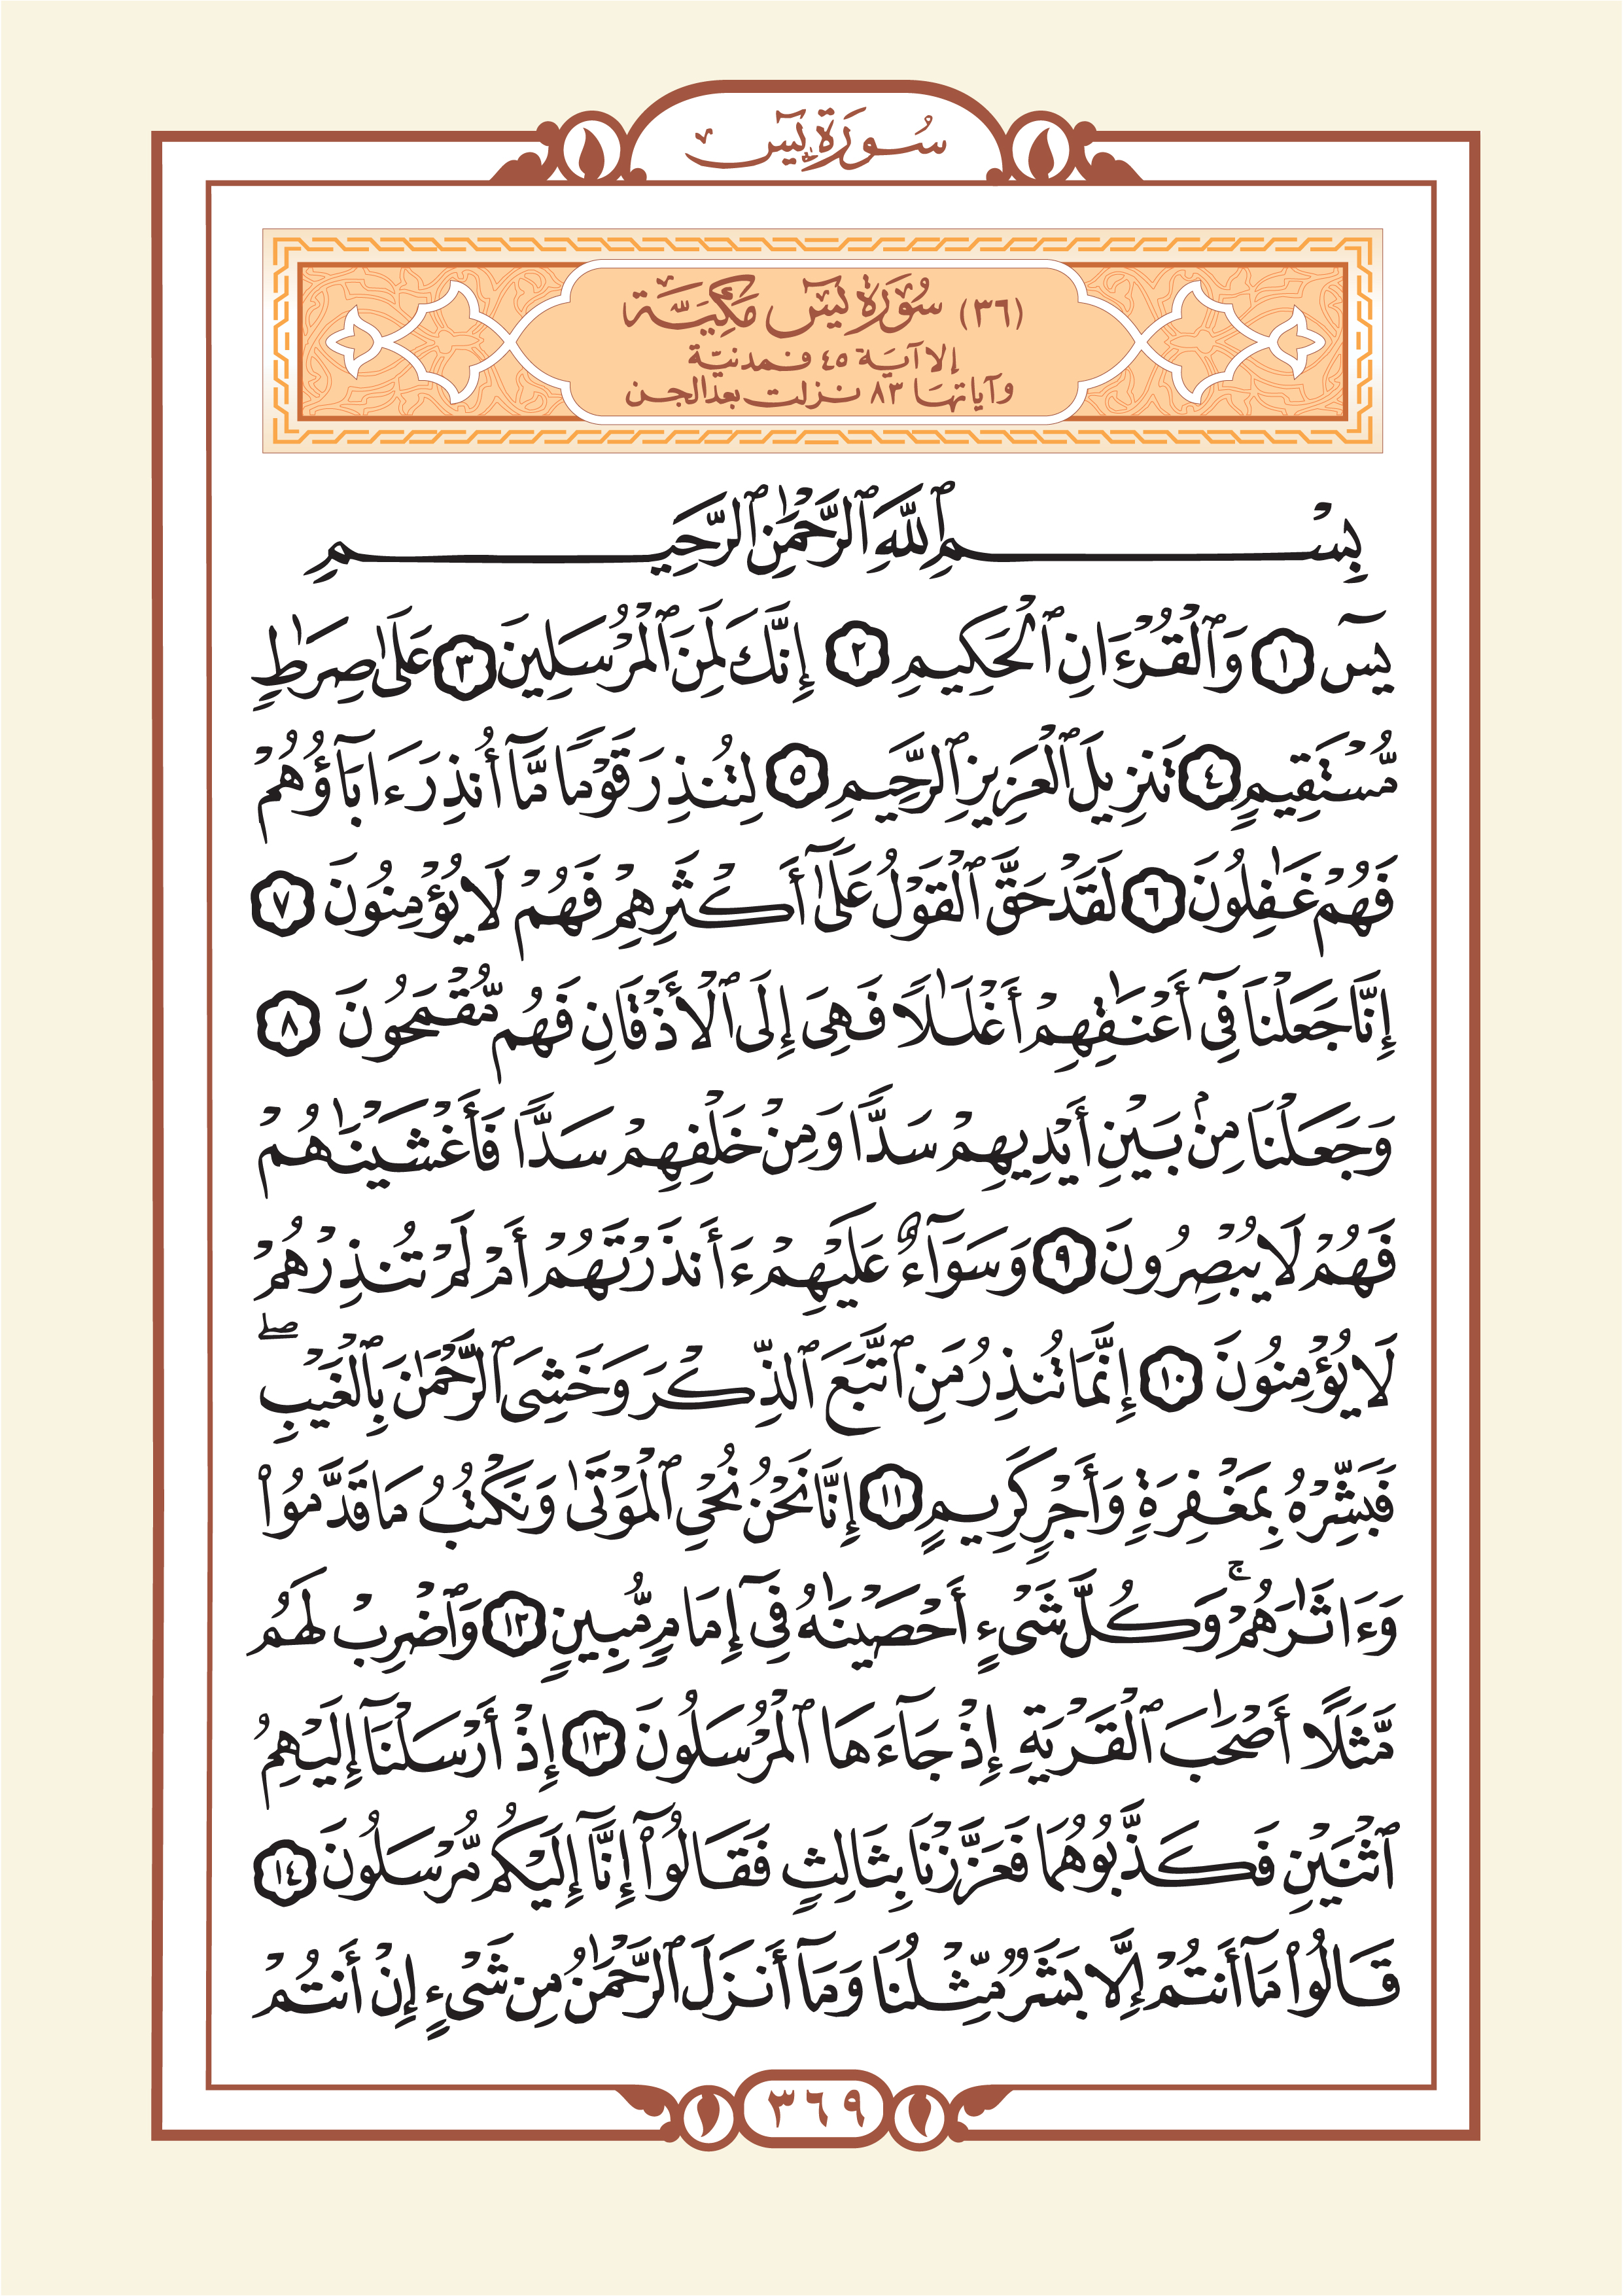 سُورَةِ يسٓ
(٣٦) سُورَةِ يسٓ مَكِّيَّة
إلا آيَة ٤٥ فمدنيّة
وآياتها ٨٣ نزلت بعد الجن
بِسْمِ ٱللَّهِ ٱلرَّحْمَٰنِ ٱلرَّحِيمِ
يسٓ ١ وَٱلْقُرْءَانِ ٱلْحَكِيمِ ٢ إِنَّكَ لَمِنَ ٱلْمُرْسَلِينَ ٣ عَلَىٰ صِرَٰطٍ
مُّسْتَقِيمٍ ٤ تَنزِيلَ ٱلْعَزِيزِ ٱلرَّحِيمِ ٥ لِتُنذِرَ قَوْمًا مَّآ أُنذِرَ ءَابَآؤُهُمْ
فَهُمْ غَٰفِلُونَ ٦ لَقَدْ حَقَّ ٱلْقَوْلُ عَلَىٰٓ أَكْثَرِهِمْ فَهُمْ لَا يُؤْمِنُونَ ٧
إِنَّا جَعَلْنَا فِىٓ أَعْنَٰقِهِمْ أَغْلَٰلًا فَهِىَ إِلَى ٱلْأَذْقَانِ فَهُم مُّقْمَحُونَ ٨
وَجَعَلْنَا مِنۢ بَيْنِ أَيْدِيهِمْ سَدًّا وَمِنْ خَلْفِهِمْ سَدًّا فَأَغْشَيْنَٰهُمْ
فَهُمْ لَا يُبْصِرُونَ ٩ وَسَوَآءٌ عَلَيْهِمْ ءَأَنذَرْتَهُمْ أَمْ لَمْ تُنذِرْهُمْ
لَا يُؤْمِنُونَ ١٠ إِنَّمَا تُنذِرُ مَنِ ٱتَّبَعَ ٱلذِّكْرَ وَخَشِىَ ٱلرَّحْمَٰنَ بِٱلْغَيْبِ ۖ
فَبَشِّرْهُ بِمَغْفِرَةٍ وَأَجْرٍ كَرِيمٍ ١١ إِنَّا نَحْنُ نُحْىِ ٱلْمَوْتَىٰ وَنَكْتُبُ مَا قَدَّمُوا۟
وَءَاثَٰرَهُمْ ۚ وَكُلَّ شَىْءٍ أَحْصَيْنَٰهُ فِىٓ إِمَامٍ مُّبِينٍ ١٢ وَٱضْرِبْ لَهُم
مَّثَلًا أَصْحَٰبَ ٱلْقَرْيَةِ إِذْ جَآءَهَا ٱلْمُرْسَلُونَ ١٣ إِذْ أَرْسَلْنَآ إِلَيْهِمُ
ٱثْنَيْنِ فَكَذَّبُوهُمَا فَعَزَّزْنَا بِثَالِثٍ فَقَالُوٓا۟ إِنَّآ إِلَيْكُم مُّرْسَلُونَ ١٤
قَالُوا۟ مَآ أَنتُمْ إِلَّا بَشَرٌ مِّثْلُنَا وَمَآ أَنزَلَ ٱلرَّحْمَٰنُ مِن شَىْءٍ إِنْ أَنتُمْ
٣٦٩